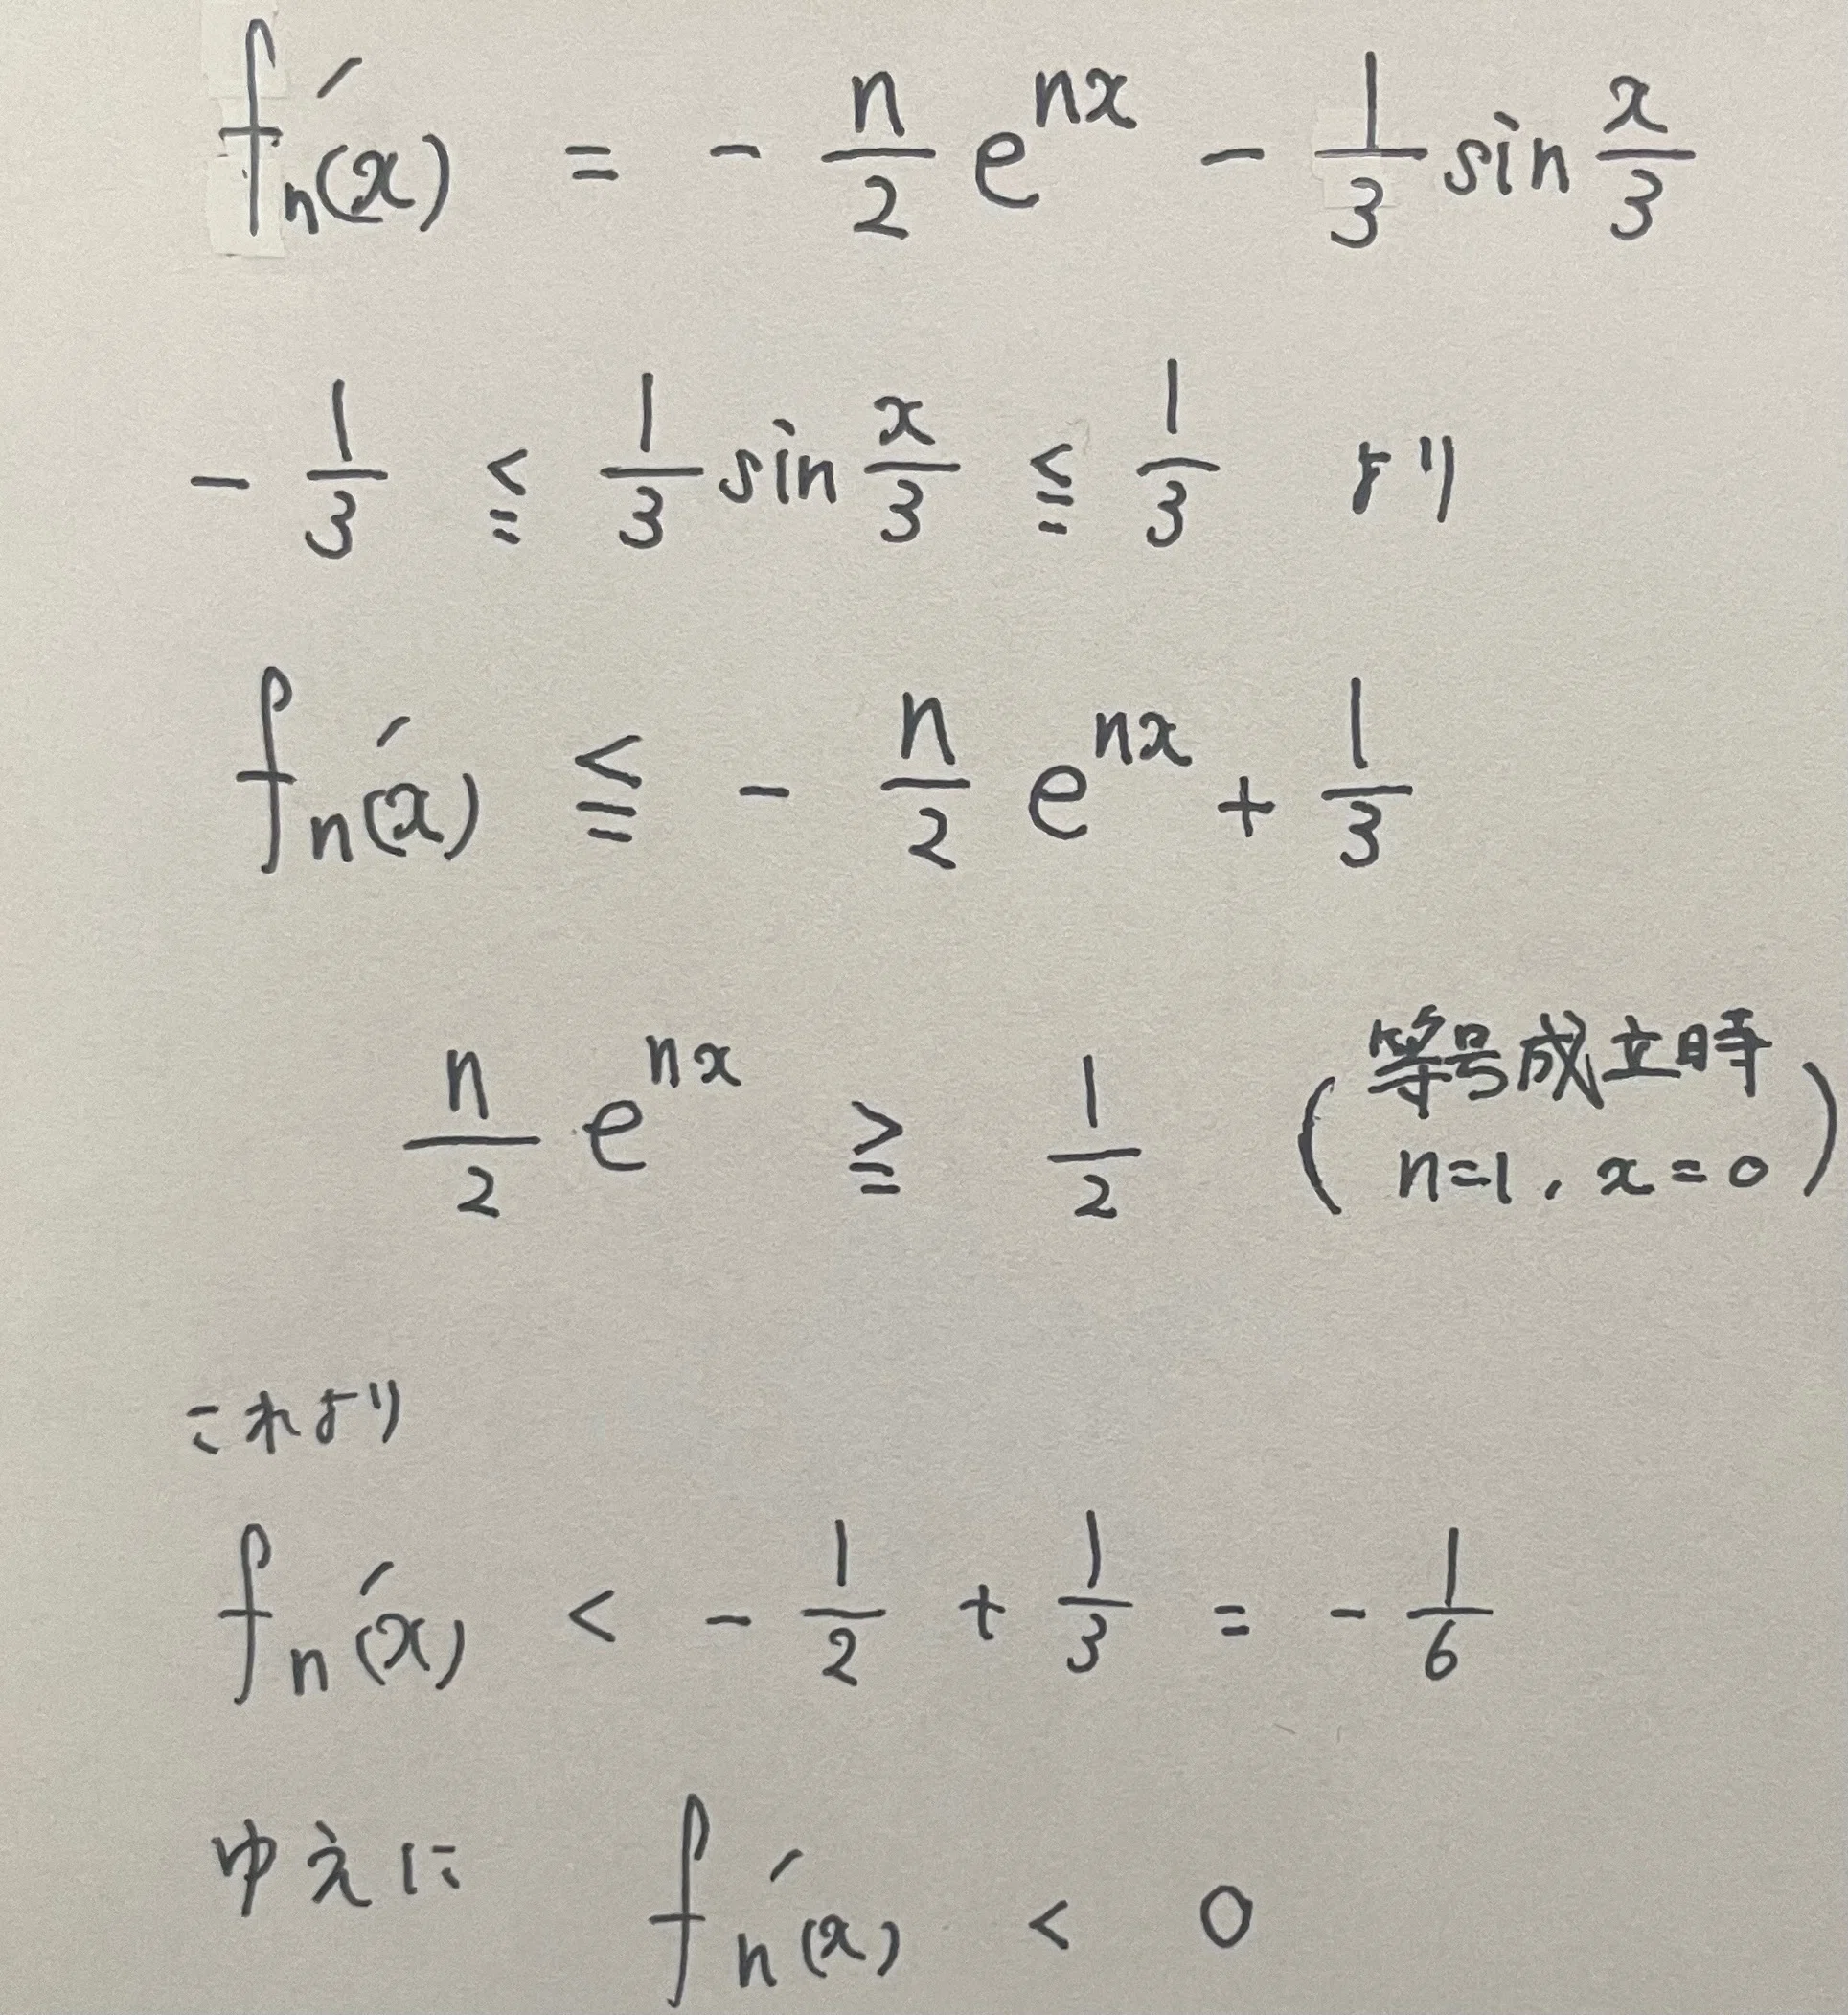 fₙ'(x) = - n/2 e^{nx} - 1/3 sin x/3
- 1/3 ≦ 1/3 sin x/3 ≦ 1/3 より
fₙ'(x) ≦ - n/2 e^{nx} + 1/3
n/2 e^{nx} ≧ 1/2 (等号成立時 n=1, x=0)
これより
fₙ'(x) < - 1/2 + 1/3 = - 1/6
ゆえに fₙ'(x) < 0